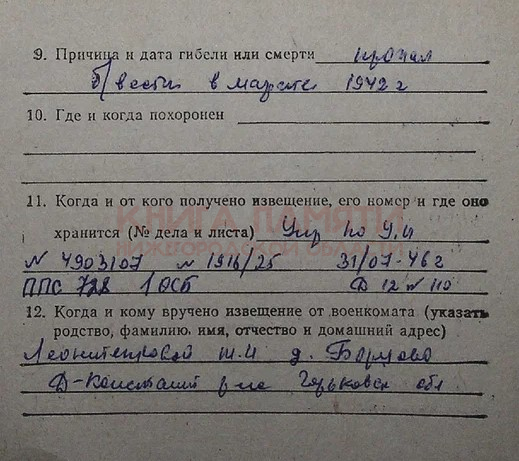 9. Причина и дата гибели или смерти пропал
б/вести в марте 1942 г
10. Где и когда похоронен
11. Когда и от кого получено извещение, его номер и где оно
КНИГА ПАМЯТИ
хранится (№ дела и листа) Упр по У.И
НИЖЕГОРОДСКОЙ ОБЛАСТИ
N 4903107 N 1916/25 31/07-46 г
ППС 728 1 ОСБ Ф 12 N 110
12. Когда и кому вручено извещение от военкомата (указать
родство, фамилию, имя, отчество и домашний адрес)
д.
Д-Констант р-на Горьковск обл